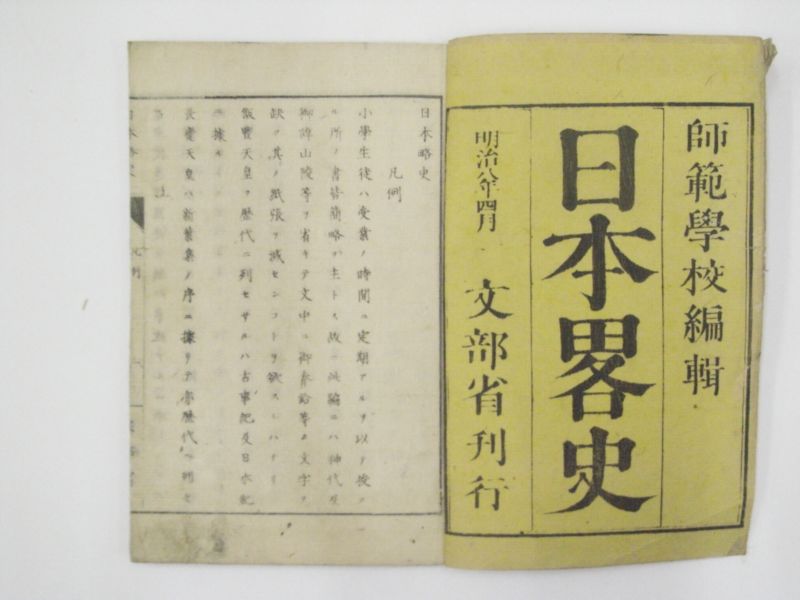 師範學校編輯
日本畧史
明治八年四月
文部省刊行
日本略史
凡例
小學生徒ハ受業ノ時間ニ定期アルヲ以テ授
ル所ノ書皆簡略ヲ主トス故ニ此編ニハ神代
御諱山陵等ヲ省キテ文中ニ御奉給等ノ文字ヲ
缺ク其ノ紙張ヲ減センコトヲ欲スレハナリ
飯豐天皇ヲ歴代ニ列セサルハ古事記及日本紀
ニ據ル
長慶天皇ハ新葉集ノ序ニ據リテ歴代ニ列セ